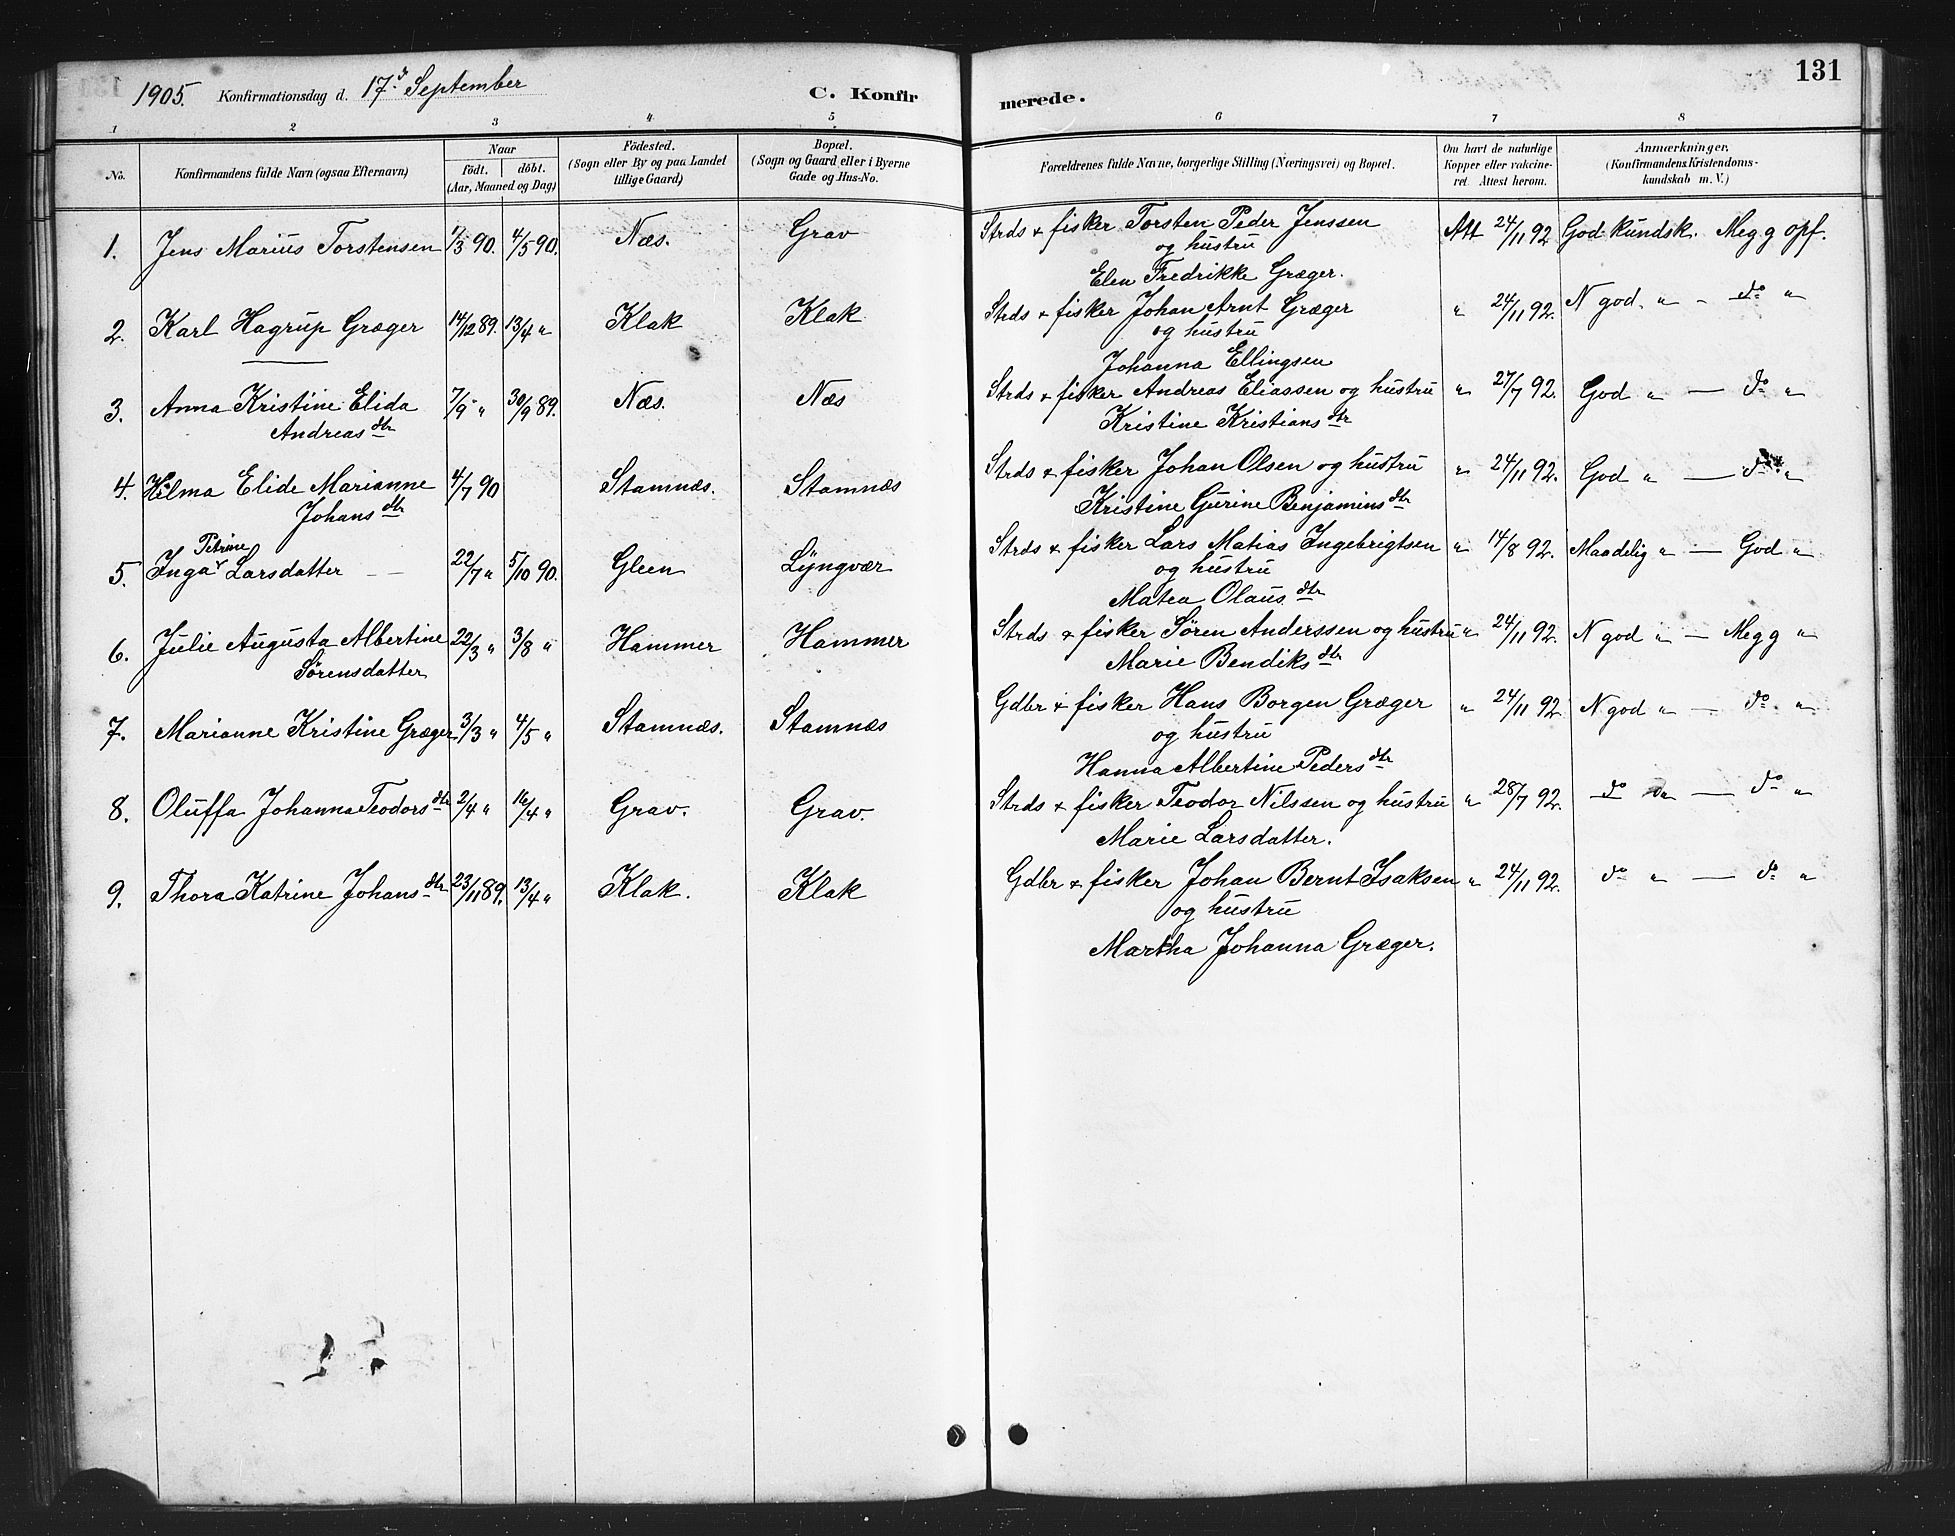 1905. Konfirmationsdag d. 17d September C. Konfirmerede. 131
1 2 3 4 5 6 7 8
No. Konfirmandens fulde Navn (ogsaa Efternavn) Naar födt. döbt. (Aar, Maaned og Dag) Födested. (Sogn eller By og paa Landet tillige Gaard) Bopæl. (Sogn og Gaard eller i Byerne Gade og Hus-No. Forældrenes fulde Navne, borgerlige Stilling (Næringsvei) og Bopæl. Om havt de naturlige Kopper eller vakcineret. Attest herom. Anmærkninger. (Konfirmandens Kristendomskundskab m. V.)
1. Jens Marius Torstensen 1/3 90. 4/5 90. Næs. Grav Strds & fisker Torsten Peder Jenssen Att 24/11 92 God kundsk. Meg g opf.
og hustru
Elen Fredrikke Græger.
2. Karl Hagrup Græger 14/12 89. 13/4 " Klak Klak Strds & fisker Johan Arnt Græger " 24/11 92. N god. " - do "
og hustru
Johanna Ellingsen
3. Anna Kristine Elida 7/9 " 30/9 89. Næs. Næs Strds & fisker Andreas Eliassen og hustru " 27/7 92. God " — do "
Andreasdtr Kristine Kristiansdtr
4. Hilma Elide Marianne 4/7 90 Stamnæs. Stamnæs Strds & fisker Johan Olsen og hustru " 24/11 92. God " — do "
Johansdtr Kristine Gurine Benjaminsdtr
Petrine
5. Inga Larsdatter — 22/7 " 5/10 90. Gleen Lyngvær Strds & fisker Lars Matias Ingebrigtsen " 14/8 92. Maadelig " — God "
og hustru
Matea Olausdtr
6. Julie Augusta Albertine 22/3 " 3/8 " Hammer Hammer Strds & fisker Søren Anderssen og hustru " 24/11 92. N god " — Meg g "
Sørensdatter Marie Bendiksdtr
7. Marianne Kristine Græger 3/3 " 4/5 " Stamnæs. Stamnæs Gdbr & fisker Hans Borgen Græger " 24/11 92 N god " — do. "
og hustru
Hanna Albertine Pedersdtr
8. Oluffa Johanna Teodorsdtr 2/4 " 16/4 " Grav. Grav. Strds & fisker Teodor Nilssen og hustru " 28/7 92. do " — do "
Marie Larsdatter.
9. Thora Katrine Johansdtr 23/11 89. 13/4 " Klak. Klak Gdbr & fisker Johan Bernt Isaksen " 24/11 92. do " — do "
og hustru
Martha Johanna Græger.